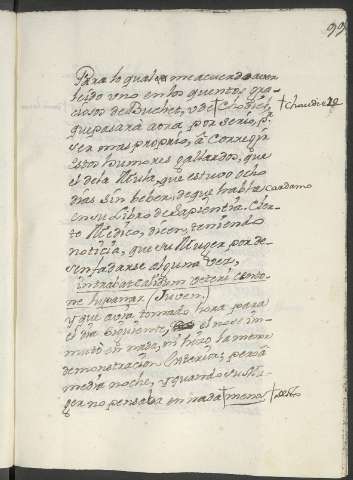 99
Para lo qual me acuerdo aver
leido uno en los quentos gra-
ciosos de Buchet, v de †Chodiel, †chaudiere
que pasara aora por serio, pª
ser mas proprio, à corregir
estos humores gallardos, que
el de la Mula, que estuvo ocho
dias sin beber, de que habla Cardamo
en su Libro de Sapientia. Cier-
to Medico, dicen, teniendo
noticia, que su Muger por de-
senfadarse alguna vez,
intrabat calidum veteri cento-
ne lupanar (Juven.)
y que avia tomado hora para
el dia siguiente, el no se in-
mutò en nada, ni hizo la menor
demonstracion exterior; pero à
media noche, y quando su Mu-
ger no pensaba en nada †menos